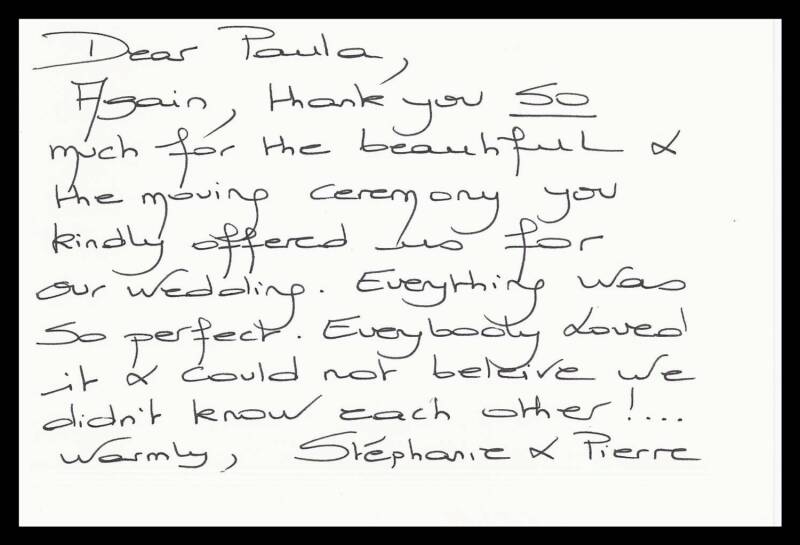 Dear Paula,
Again, thank you so
much for the beautiful &
the moving ceremony you
kindly offered us for
our wedding. Everything was
so perfect. Everybody loved
it & could not beleive we
didn't know each other!...
Warmly, Stéphanie & Pierre